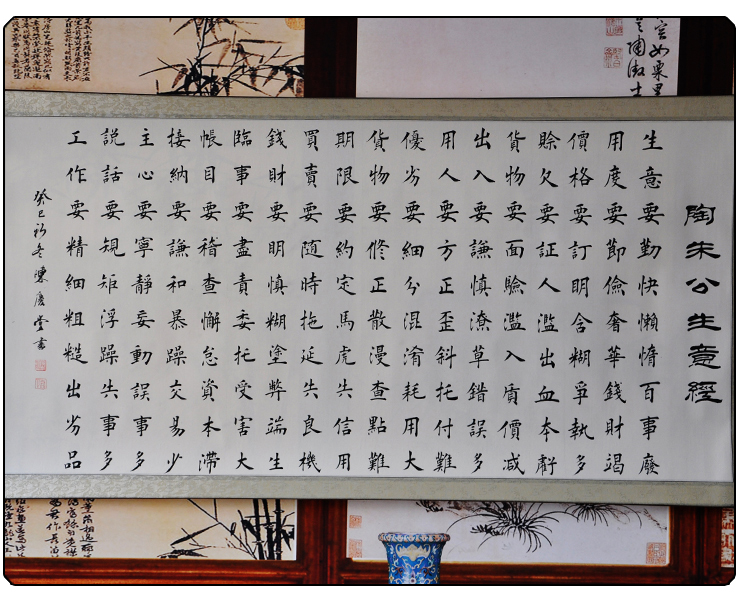 陶朱公生意經
生意要勤快懶惰百事廢
用度要節儉奢華錢財竭
價格要訂明含糊爭執多
賒欠要証人濫出血本虧
貨物要面驗濫入質價減
出入要謙慎潦草錯誤多
用人要方正歪斜托付難
優劣要細分混淆耗用大
貨物要修正散漫查點難
期限要約定馬虎失信用
買賣要隨時拖延失良機
錢財要明慎糊塗弊端生
臨事要盡責委托受害大
帳目要稽查懈怠資本滯
接納要謙和暴躁交易少
主心要寧靜妄動誤事多
說話要規矩浮躁失事多
工作要精細粗糙出劣品
癸巳初冬陳慶堂書